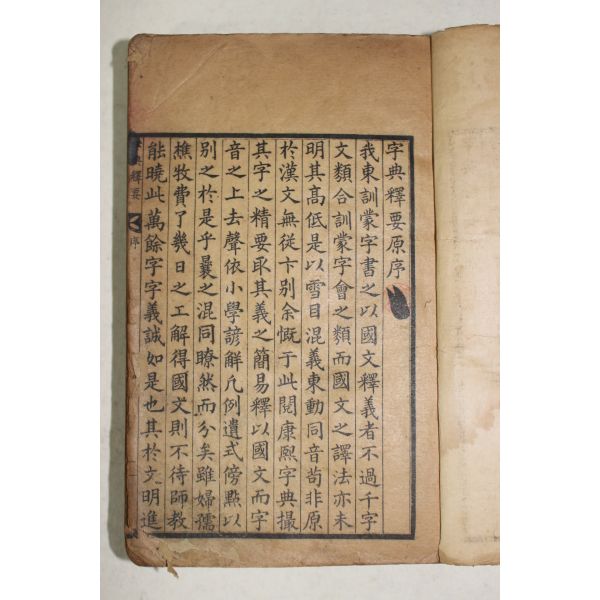 字典釋要原序
我東訓蒙字書之以國文釋義者不過千字
文類合訓蒙字會之類而國文之譯法亦未
明其高低是以雪目混義東動同音苟非原
於漢文無從卞別余慨于此閱康熙字典撮
其字之精要取其義之簡易釋以國文而字
音之上去聲依小學諺解凡例遺式傍點以
別之於是乎曩之混同瞭然而分矣雖婦孺
樵牧費了幾日之工解得國文則不待師教
能曉此萬餘字字義誠如是也其於文明進
典釋要 序